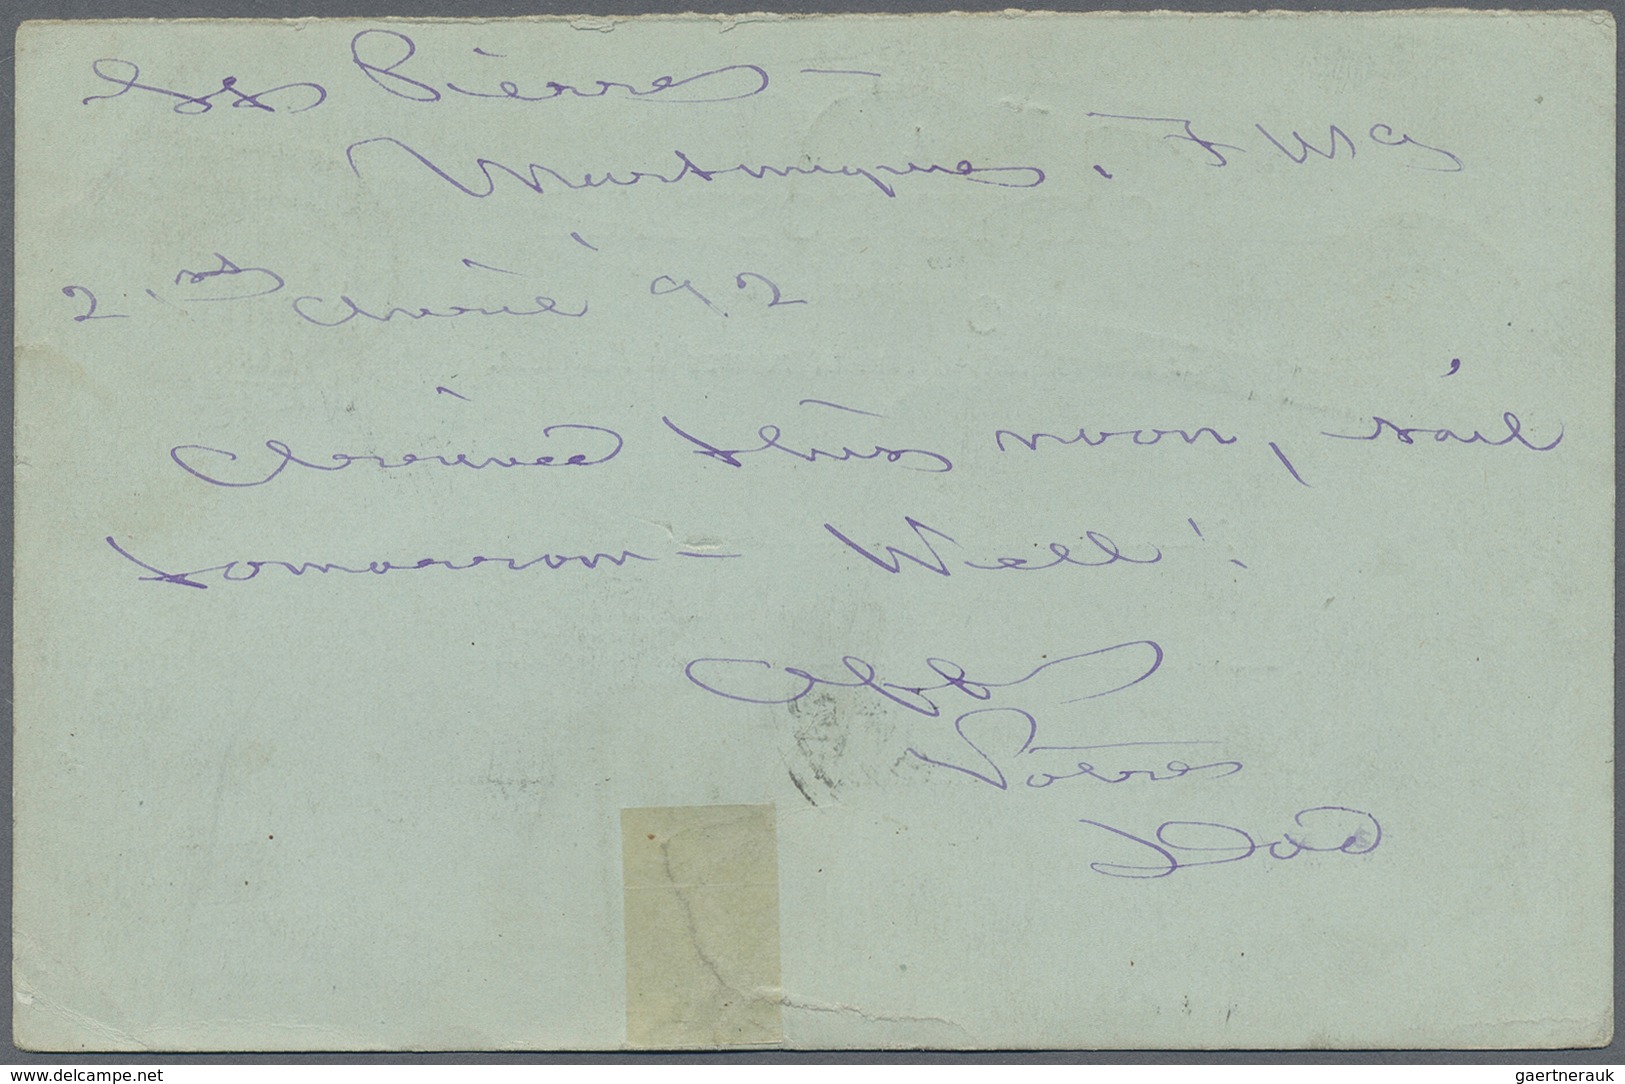 St Pierre –
Martinique, F W I
2. Avril 92
Arrived this noon, sail
tomorrow – Well!
Aff
Votre
Dad
www.delcampe.net
gaertnerauk